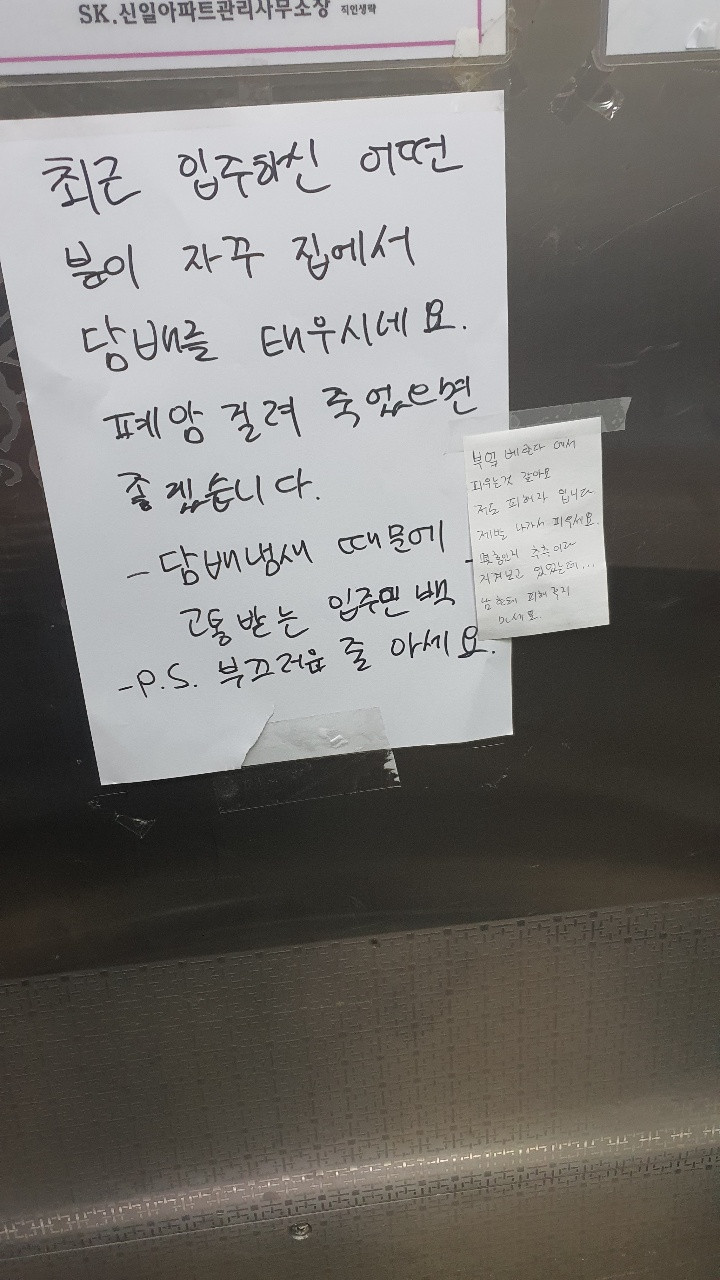 SK.신일아파트관리사무소장 직인생략
최근 입주하신 어떤
분이 자꾸 집에서
담배를 태우시네요.
폐암 걸려 죽었으면
좋겠습니다.
- 담배냄새 때문에
고통받는 입주민 백 -
- P.S. 부끄러움 줄 아세요.
부엌 베란다에서
피우는것 같아요
저도 피해자 입니다
제발 나가서 피우세요.
추측이라
지켜보고 있었는데...
남한테 피해 주지
마세요.